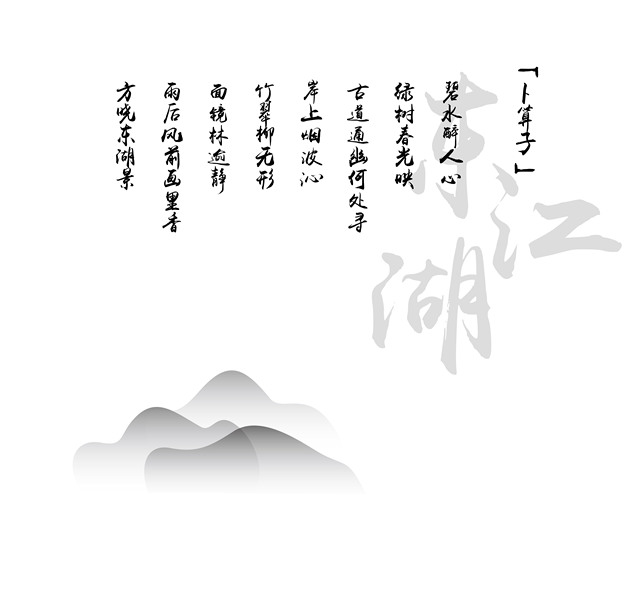 「卜算子」
碧水醉人心
绿树春光映
古道通幽何处寻
岸上烟波沁
竹翠柳无形
面镜林逾静
雨后风前画里香
方晓东湖景
东江湖